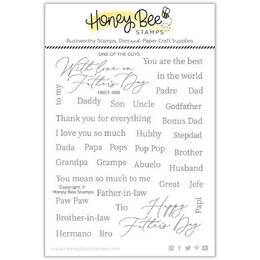 Honey Bee
STAMPS
Buzzworthy Stamps, Dies and Paper Craft Supplies
ONE OF THE GUYS
With love on
Father's Day
You are the best
in the world
to my
HBST-488
Padre
Dad
Daddy
Son
Uncle
Godfather
Thank you for everything
Bonus Dad
I love you so much
Hubby
Stepdad
Dada
Papa
Pops
Pop Pop
Brother
Grandpa
Gramps
Abuelo
Husband
You mean so much to me
Great
Jefe
Copyright ©
Honey Bee Stamps
Father-in-law
Paw Paw
Tio
Happy
Father's Day
Papi
Brother-in-law
Hermano
Bro
www.HoneyBeeStamps.com